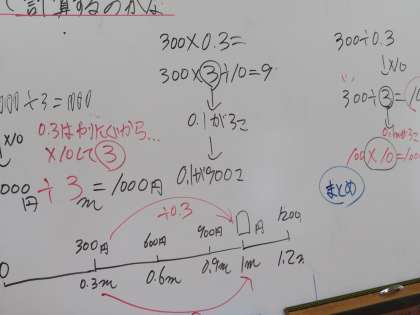 て計算するのかな
300×0.3=
300×3÷10=9
0.1が3こ
0.1が900こ
300÷0.3
×10
300÷3=
×10=
まとめ
÷3=1000
×10
0.3はわりにくいから…
×10して3
000円÷3m=1000円
÷0.3
300円
600円
900円
□円
1200
0
0.3m
0.6m
0.9m
1m
1.2m